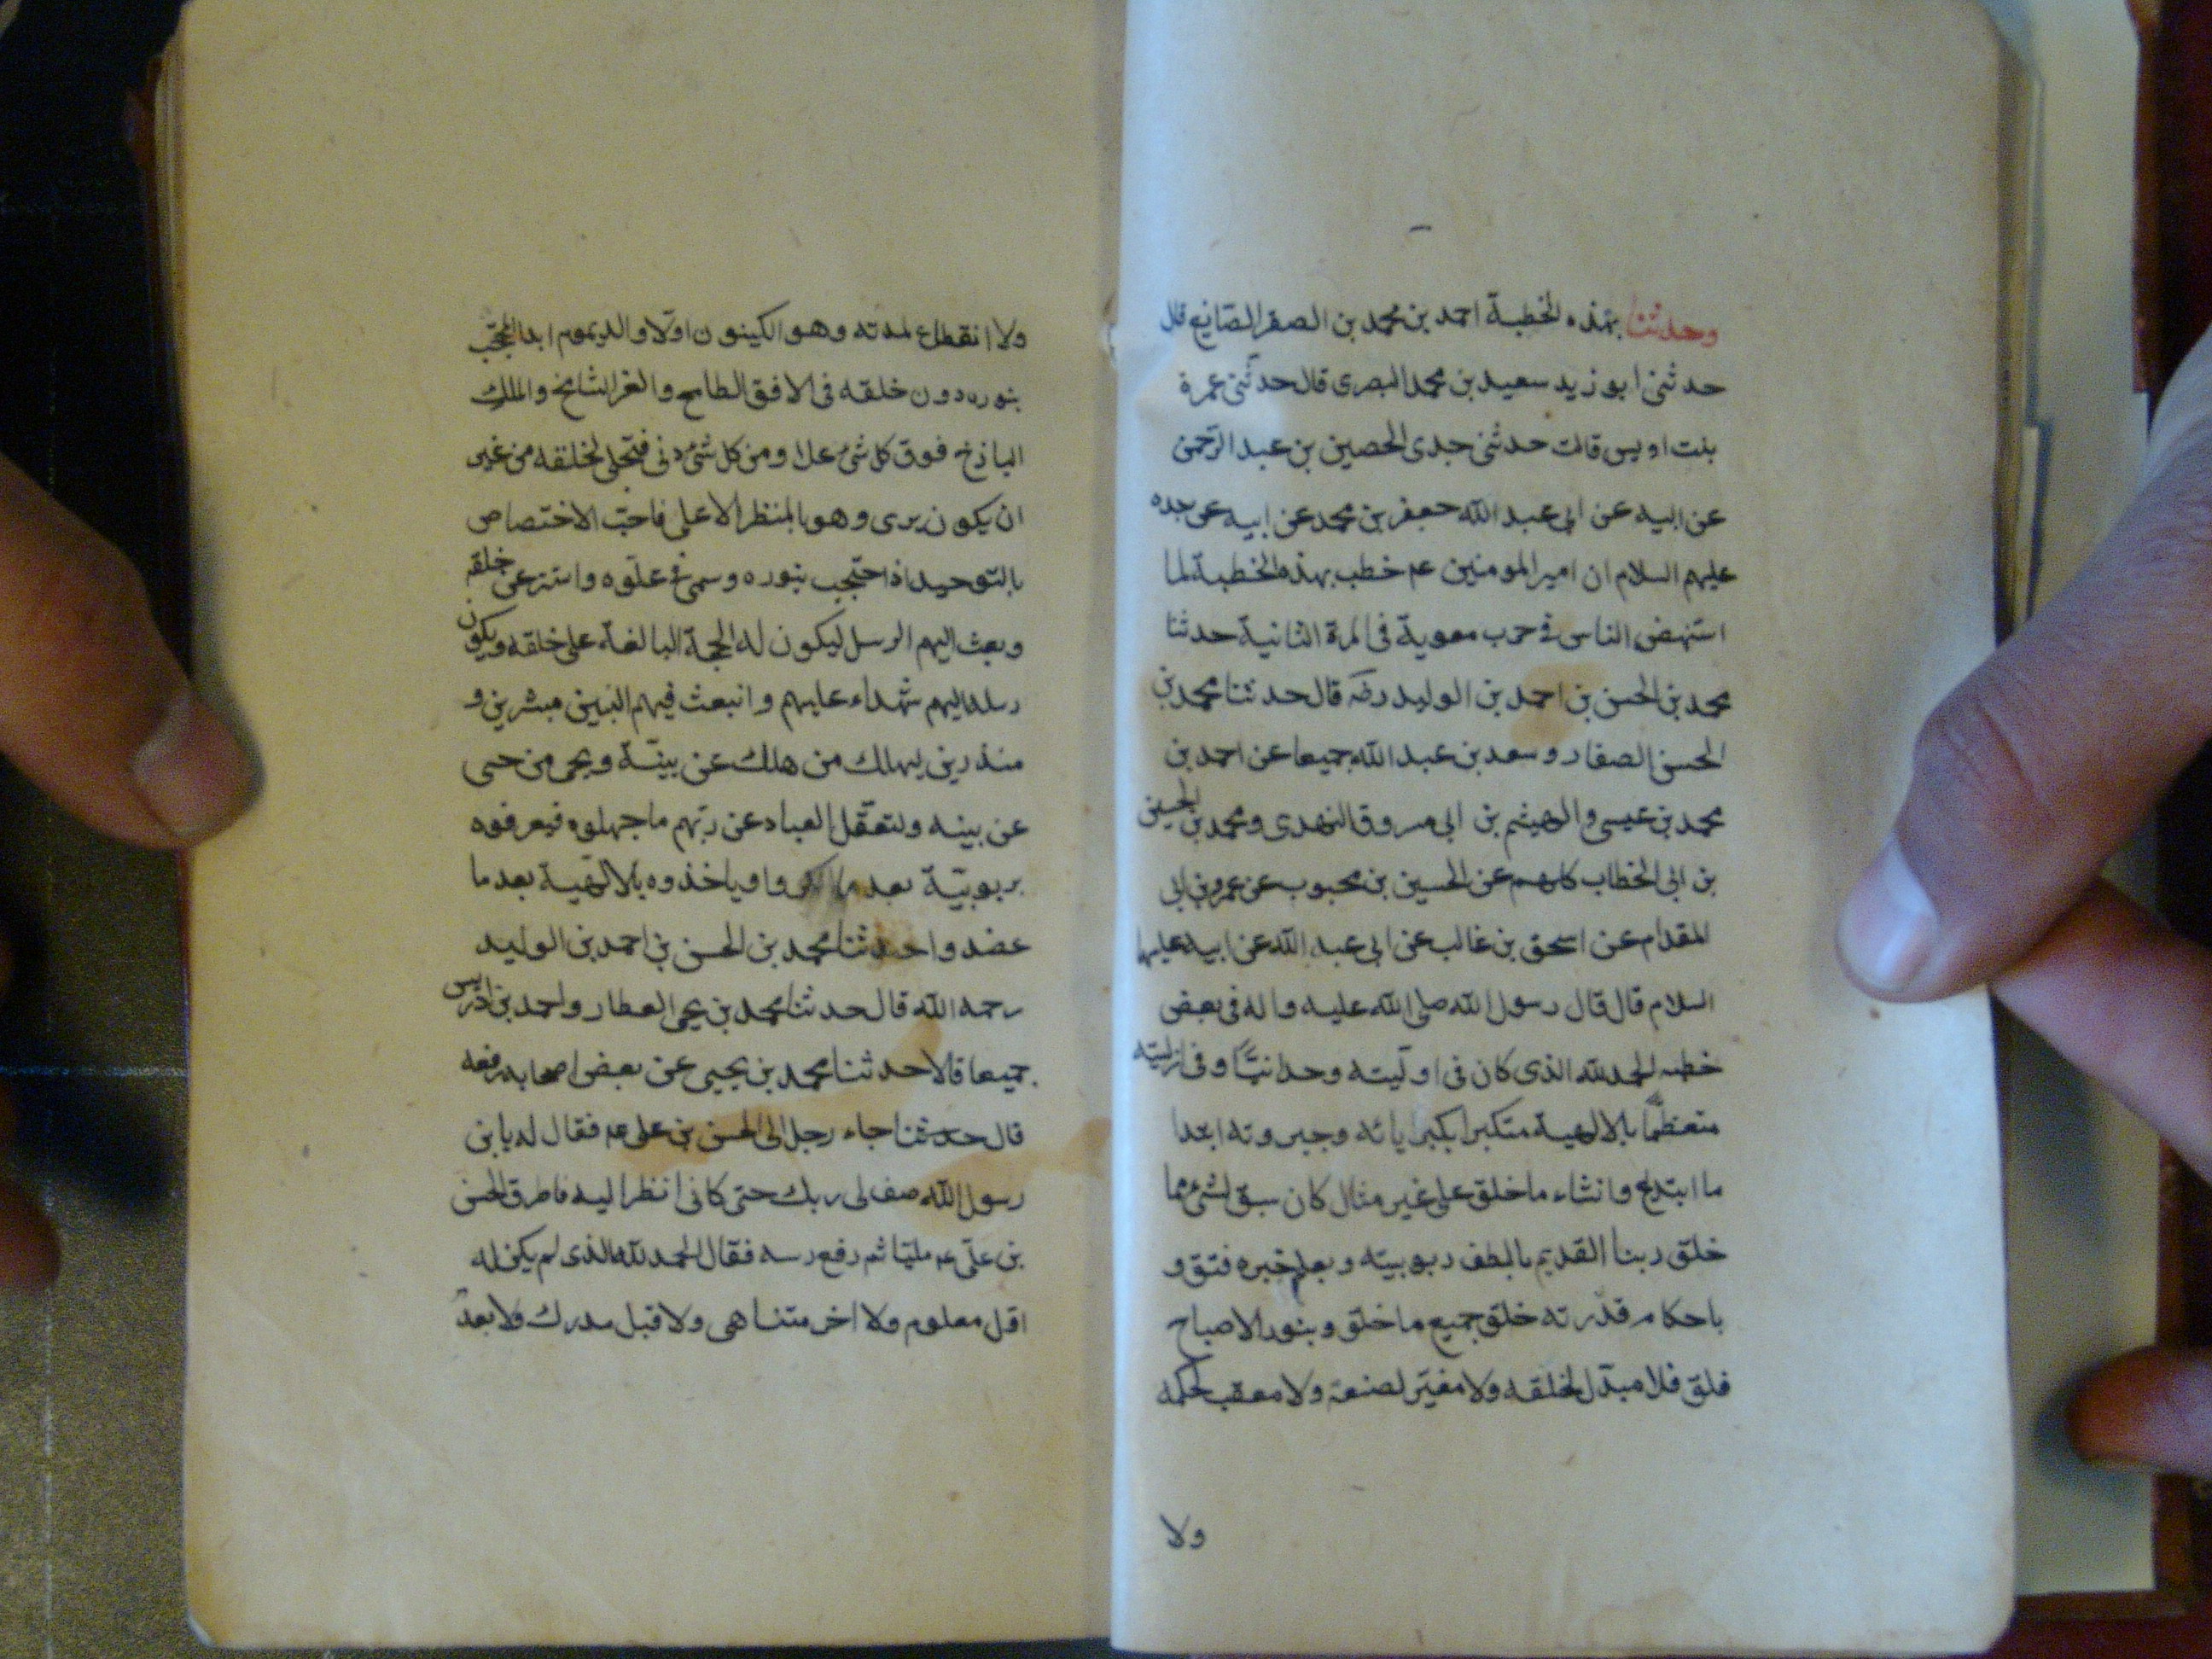 وحدثنا بهذه الخطبة احمد بن محمد بن الصقر الصّايغ قال
حدثنى ابو زيد سعيد بن محمد البصرى قال حدثتنى عمرة
بنت اويس قالت حدثنى جدى الحصين بن عبد الرّحمن
عن ابيه عن ابى عبد الله جعفر بن محمد عن ابيه عن جده
عليهم السلام ان امير المومنين عم خطب بهذه الخطبة لما
استنهض الناس فى حرب معوية فى المرة الثانية حدثنا
محمد بن الحسن بن احمد بن الوليد رضه قال حدثنا محمد بن
الحسن الصفار وسعد بن عبد الله جميعا عن احمد بن
محمد بن عيسى والهيثم بن ابى مسروق النهدى ومحمد بن الحسين
بن ابى الخطاب كلهم عن الحسين بن محبوب عن عمرو بن ابى
المقدام عن اسحق بن غالب عن ابى عبد الله عن ابيه عليهما
السلام قال قال رسول الله صلى الله عليه واله فى بعض
خطبه الحمد لله الذى كان فى اوليته وحدانيّا وفى ازليته
متعظما بالالهية متكبرا بكبريائه وجبروته ابتدا
ما ابتدع وانشاء ما خلق على غير مثال كان سبق لشئ مما
خلق ربنا القديم بالطف ربوبيته وبعلم خبره فتق و
باحكام قدرته خلق جميع ما خلق وبنور الاصباح
فلق فلا مبدّل لخلقه ولا مغيّر لصنعه ولا معقب لحكمه
ولا
ولا انقطاع لمدته وهو الكينون اوّلا والديموم ابدا المحتجب
بنوره دون خلقه فى الافق الطامح والعز الشامخ والملك
الباذخ فوق كل شئ علا ومن كل شئ دنى فتجلى لخلقه من غير
ان يكون يرى وهو بالمنظر الاعلى فاحبّ الاختصاص
بالتوحيد اذ احتجب بنوره وسمى فى علوّه واستتر عن خلقه
وبعث اليهم الرسل ليكون له الحجة البالغة على خلقه ويكون
رسله اليهم شهداء عليهم وانبعث فيهم النبيين مبشرين و
منذرين ليهلك من هلك عن بينّة ويحى من حى
عن بينه ولتعقل العباد عن ربّهم ما جهلوه فيعرفوه
بربوبيّة بعد ما وياخذوه بالالهية بعد ما
عضدوا حدثنا محمد بن الحسن بن احمد بن الوليد
رحمه الله قال حدثنا محمد بن يحيى العطار واحمد بن ادريس
جميعا قالا حدثنا محمد بن يحيى عن بعض اصحابه رفعه
قال حدثنا جاء رجل الى الحسن بن على عم فقال له يا بن
رسول الله صف لى ربك حتى كانى انظر اليه فاطرق الحسن
بن علىّ عم مليّا ثم رفع رسه فقال الحمد لله الذى لم يكن له
اوّل معلوم ولا اخر متناهى ولا قبل مدرك ولا بعد